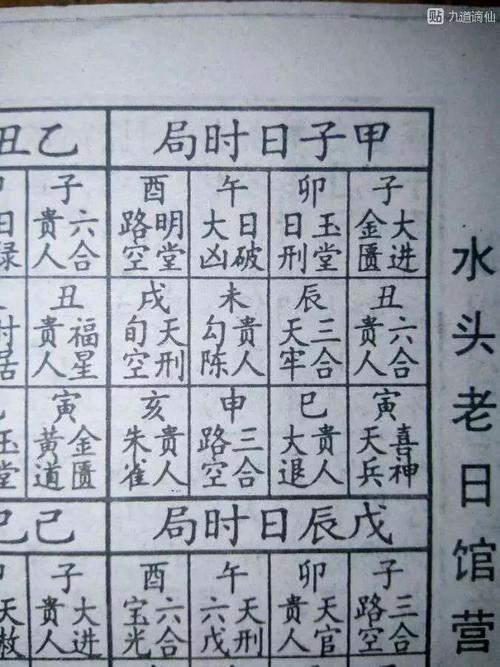 九道谪仙
水头老日馆营
甲子日时局
子
大进
金匮
丑
六合
贵人
寅
喜神
天兵
卯
玉堂
日刑
辰
三合
天牢
巳
贵人
大退
午
日破
大凶
未
贵人
勾陈
申
三合
路空
酉
明堂
路空
戌
天刑
旬空
亥
贵人
朱雀
乙丑
子
六合
贵人
丑
福星
贵人
寅
金匮
黄道
戊辰日时局
子
三合
路空
卯
天官
贵人
午
天刑
六戊
酉
六合
宝光
己巳
子
大进
贵人
天赦